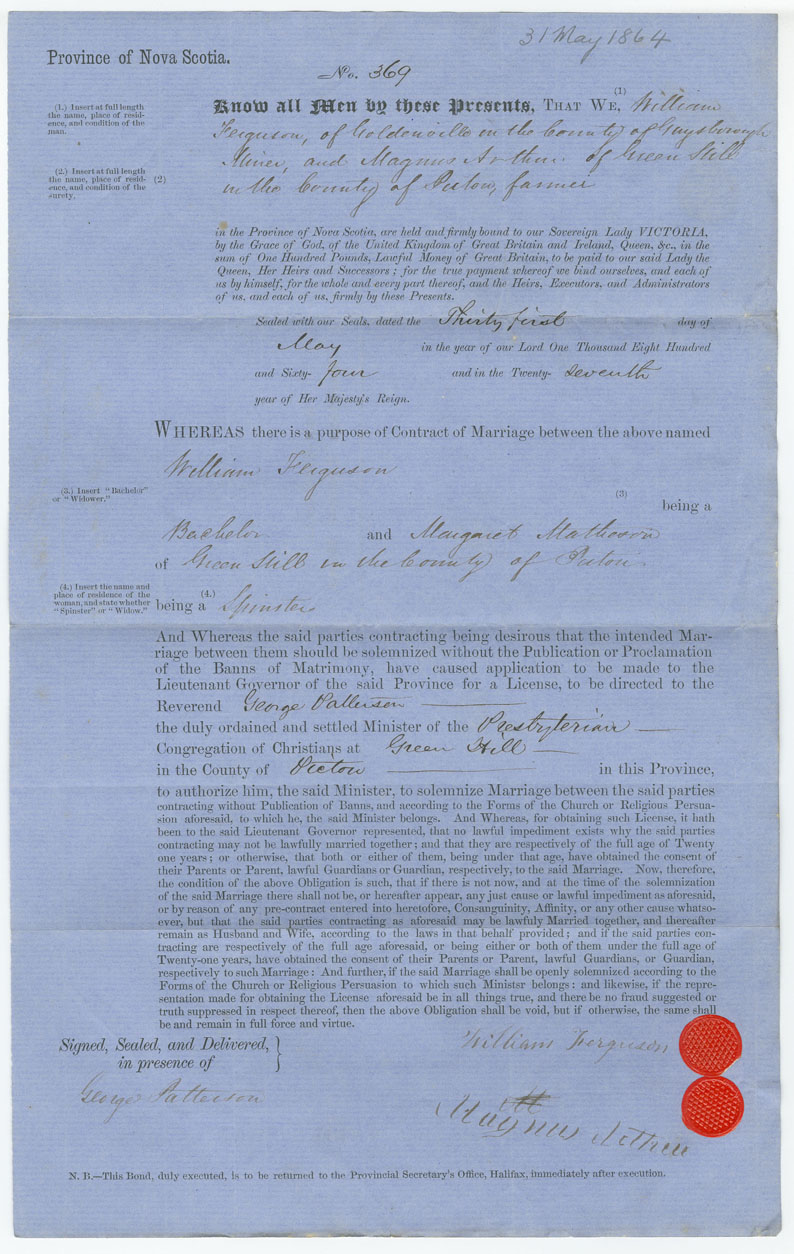 31 May 1864
Province of Nova Scotia.
No. 369
(1)
Know all Men by these Presents, THAT WE, William
Ferguson, of Goldenville in the County of Guysborough
Miner, and Magnus Arthur of Green Hill
in the County of Pictou, farmer
(1.) Insert at full length
the name, place of resid-
ence, and condition of the
man.
(2.) Insert at full length
the name, place of resid-
ence, and condition of the
surety.
(2)
in the Province of Nova Scotia, are held and firmly bound to our Sovereign Lady VICTORIA,
by the Grace of God, of the United Kingdom of Great Britain and Ireland, Queen, &c., in the
sum of One Hundred Pounds, Lawful Money of Great Britain, to be paid to our said Lady the
Queen, Her Heirs and Successors; for the true payment whereof we bind ourselves, and each of
us by himself, for the whole and every part thereof, and the Heirs, Executors, and Administrators
of us, and each of us, firmly by these Presents.
Sealed with our Seals, dated the Thirty first day of
May in the year of our Lord One Thousand Eight Hundred
and Sixty- four and in the Twenty- seventh
year of Her Majesty's Reign.
WHEREAS there is a purpose of Contract of Marriage between the above named
William Ferguson
(3.) Insert "Bachelor"
or "Widower."
(3)
being a
Bachelor and Margaret Matheson
of Green Hill in the County of Pictou
(4.) Insert the name and
place of residence of the
woman, and state whether
"Spinster" or "Widow."
(4.)
being a Spinster
And Whereas the said parties contracting being desirous that the intended Mar-
riage between them should be solemnized without the Publication or Proclamation
of the Banns of Matrimony, have caused application to be made to the
Lieutenant Governor of the said Province for a License, to be directed to the
Reverend George Patterson
the duly ordained and settled Minister of the Presbyterian
Congregation of Christians at Green Hill
in the County of Pictou in this Province,
to authorize him, the said Minister, to solemnize Marriage between the said parties
contracting without Publication of Banns, and according to the Forms of the Church or Religious Persua-
sion aforesaid, to which he, the said Minister belongs. And Whereas, for obtaining such License, it hath
been to the said Lieutenant Governor represented, that no lawful impediment exists why the said parties
contracting may not be lawfully married together; and that they are respectively of the full age of Twenty
one years; or otherwise, that both or either of them, being under that age, have obtained the consent of
their Parents or Parent, lawful Guardians or Guardian, respectively, to the said Marriage. Now, therefore,
the condition of the above Obligation is such, that if there is not now, and at the time of the solemnization
of the said Marriage there shall not be, or hereafter appear, any just cause or lawful impediment as aforesaid,
or by reason of any pre-contract entered into heretofore, Consanguinity, Affinity, or any other cause whatso-
ever, but that the said parties contracting as aforesaid may be lawfuly Married together, and thereafter
remain as Husband and Wife, according to the laws in that behalf provided; and if the said parties con-
tracting are respectively of the full age aforesaid, or being either or both of them under the full age of
Twenty-one years, have obtained the consent of their Parents or Parent, lawful Guardians, or Guardian,
respectively to such Marriage: And further, if the said Marriage shall be openly solemnized according to the
Forms of the Church or Religious Persuasion to which such Ministsr belongs: and likewise, if the repre-
sentation made for obtaining the License aforesaid be in all things true, and there be no fraud suggested or
truth suppressed in respect thereof, then the above Obligation shall be void, but if otherwise, the same shall
be and remain in full force and virtue.
Signed, Sealed, and Delivered,
in presence of
William Ferguson
George Patterson
Magnus Arthur
N. B.—This Bond, duly executed, is to be returned to the Provincial Secretary's Office, Halifax, immediately after execution.